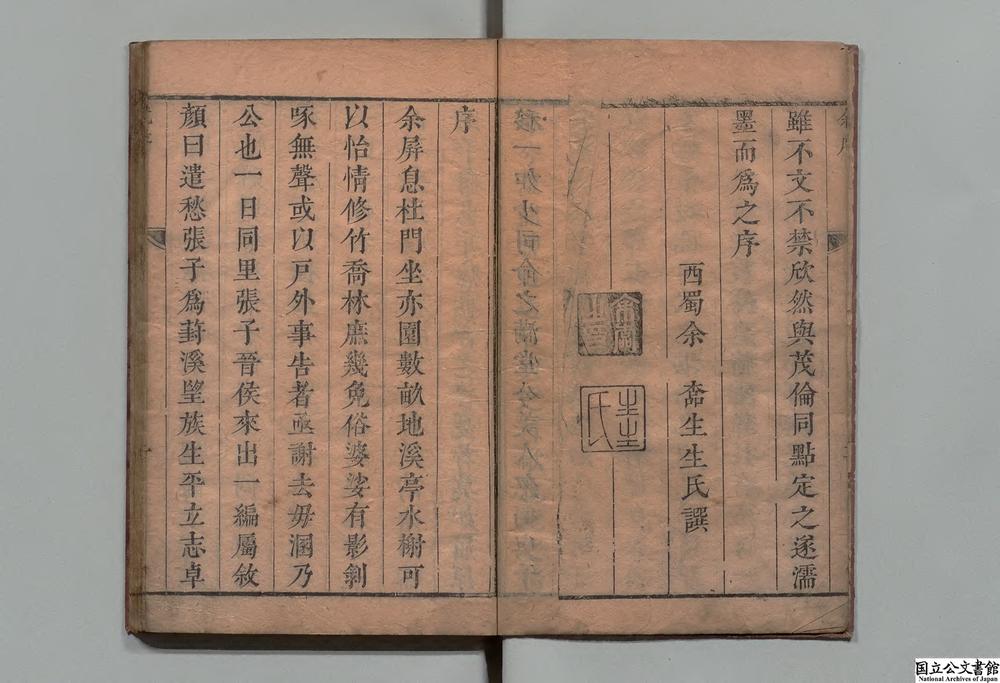 雖不文不禁欣然與茂倫同點定之遂濡
墨而爲之序
西蜀余𡘊生生氏譔
生生氏
序
余屏息杜門坐亦園數畝地溪亭水榭可
以怡情修竹喬林庶幾免俗婆娑有影剝
啄無聲或以戸外事告者亟謝去毋溷乃
公也一日同里張子晉侯來出一編屬敘
顏曰遣愁張子爲葑溪望族生平立志卓
国立公文書館
National Archives of Japan